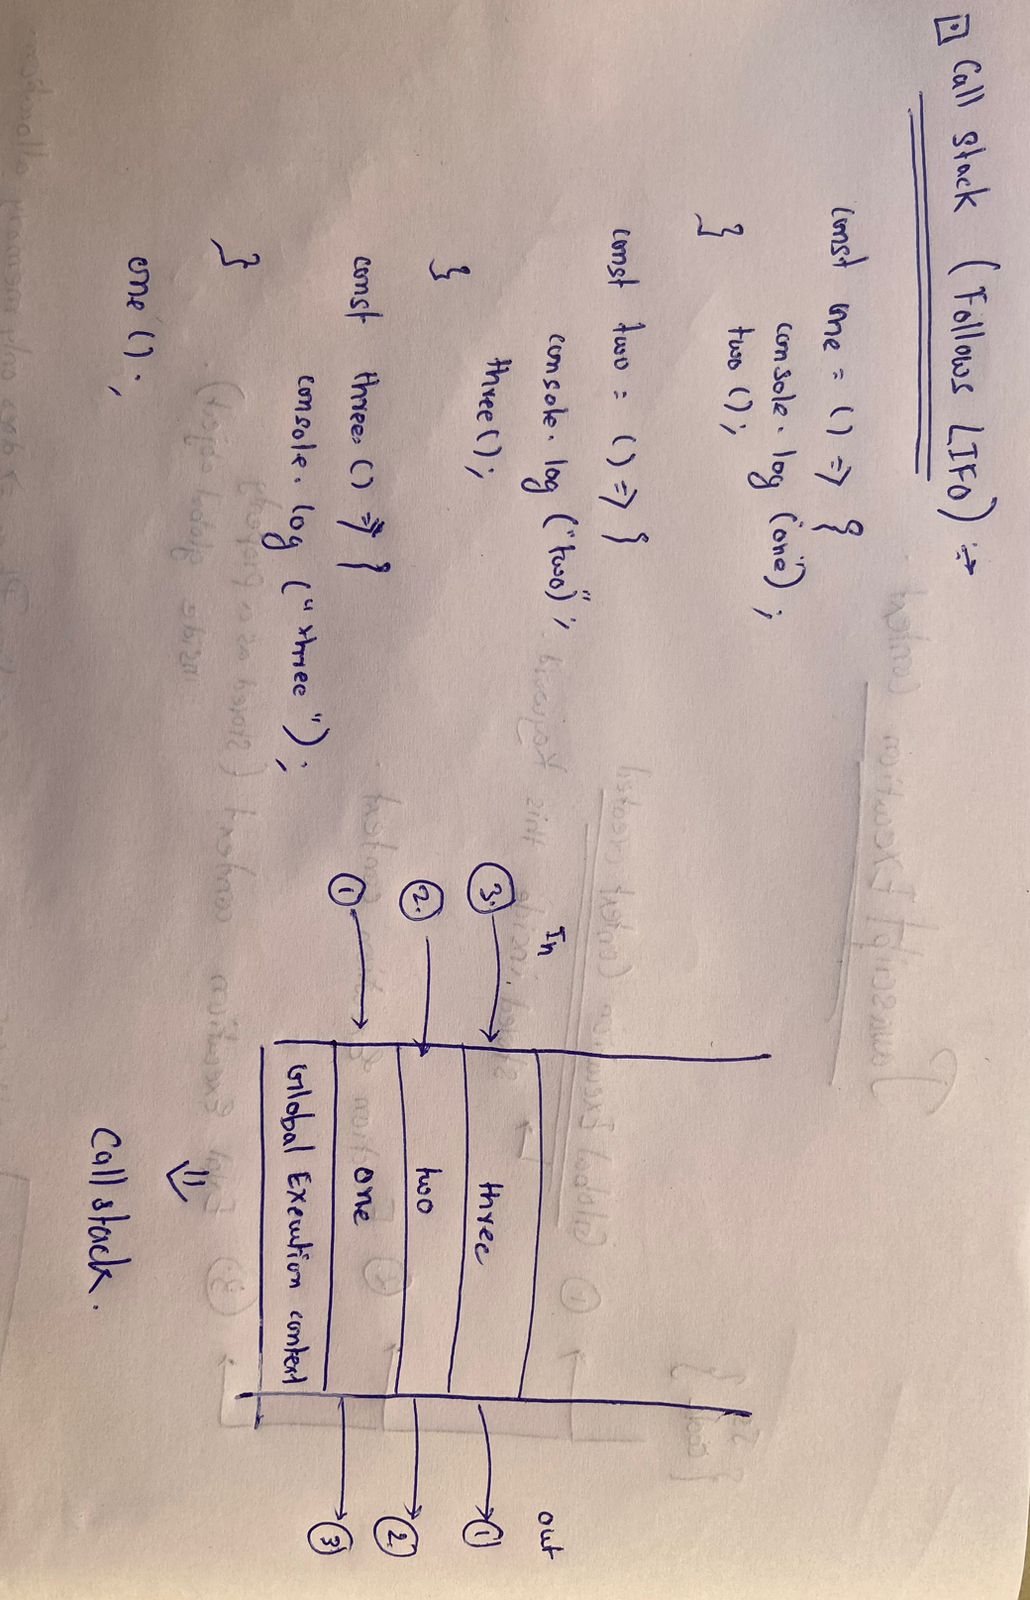 Call stack (Follows LIFO) :→
const one = () => {
console.log ("one");
two ();
}
const two = () => {
console.log ("two");
three();
}
const three = () => {
console.log ("three");
}
one ();
In
out
3.
three
1
2.
two
2.
1
one
3
Global Execution context
Call stack.